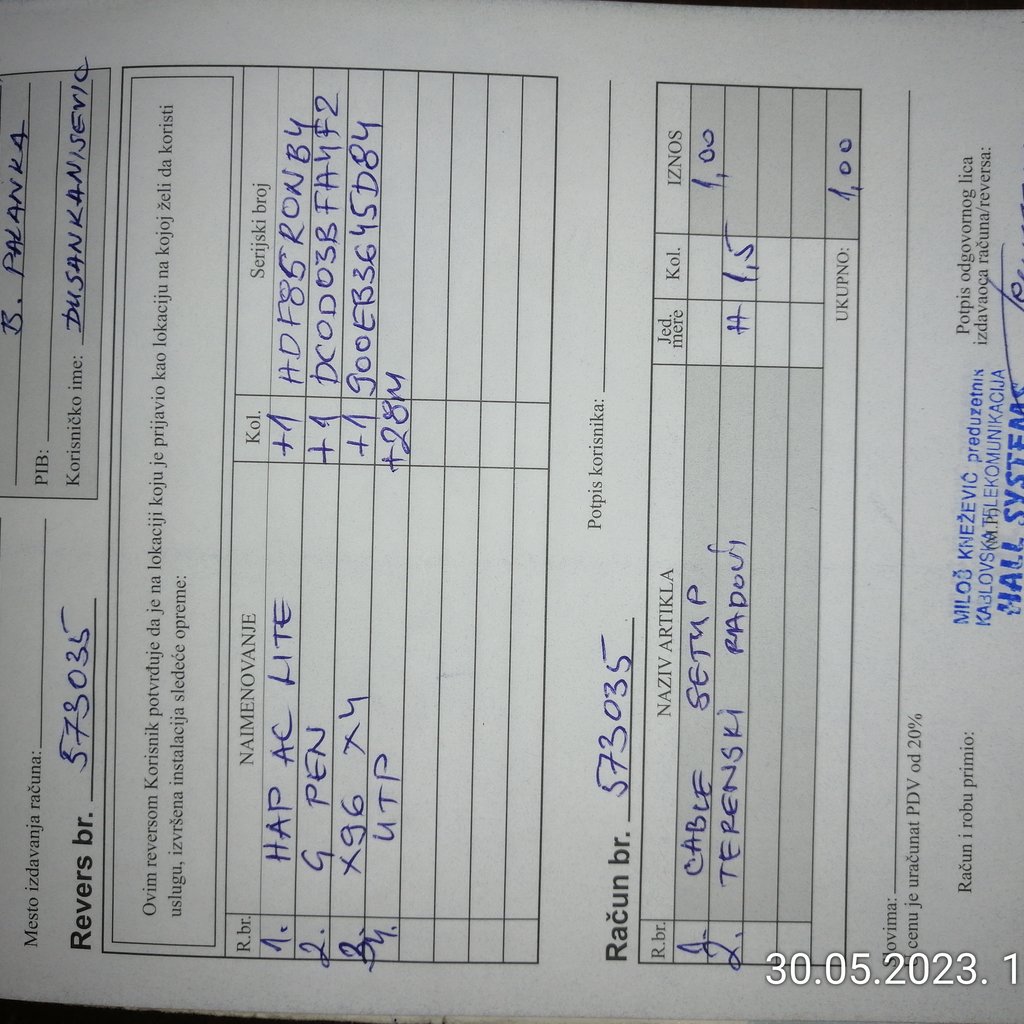 B. PALANKA
Mesto izdavanja računa:
PIB:
Revers br. 573035
Korisničko ime: DUSANKANISEVIC
Ovim reversom Korisnik potvrđuje da je na lokaciji koju je prijavio kao lokaciju na kojoj želi da koristi
uslugu, izvršena instalacija sledeće opreme:
R.br. NAIMENOVANJE Kol. Serijski broj
1. HAP AC LITE +1 HDF85RONB4
2. G PEN +1 DC0D03BFA4F2
3. X96 X4 +1 900EB3645D84
4. UTP +28M
Potpis korisnika:
Račun br. 573035
R.br. NAZIV ARTIKLA Jed. mere Kol. IZNOS
1. CABLE SETUP 1,00
2. TERENSKI RADOVI H 1,5
UKUPNO: 1,00
Slovima:
U cenu je uračunat PDV od 20%
Račun i robu primio:
Potpis odgovornog lica
izdavaoca računa/reversa:
MILOŠ KNEŽEVIĆ preduzetnik
KABLOVSKA TELEKOMUNIKACIJA
(M.P.)
HALL SYSTEMS
30.05.2023. 1